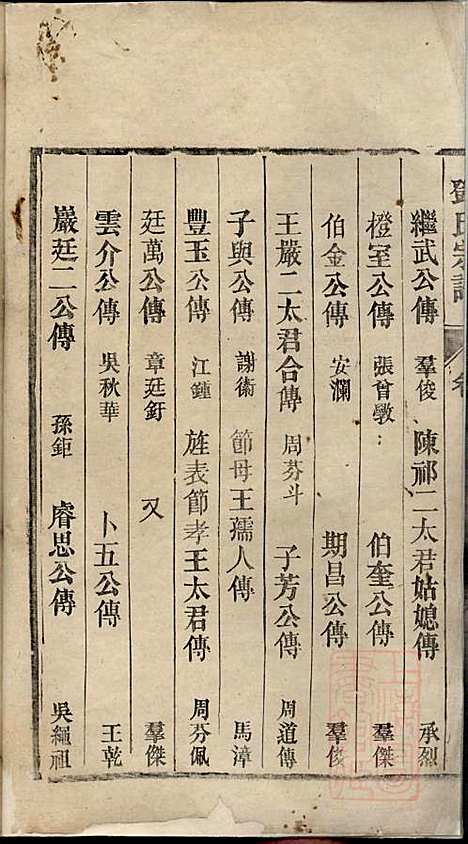 鄧氏宗譜
繼武公傳 羣俊 陳祁二太君姑媳傳 承烈
橙室公傳 張曾敭 伯奎公傳 羣傑
伯金公傳 安瀾 期昌公傳 羣俊
王嚴二太君合傳 周芬斗 子芳公傳 周道傳
子與公傳 謝銜 節母王孺人傳 馬漳
豐玉公傳 江鍾 旌表節孝王太君傳 周芬佩
廷萬公傳 章廷釪 又 羣傑
雲介公傳 吳秋華 卜五公傳 王乾
巖廷二公傳 孫鉅 睿思公傳 吳繩祖